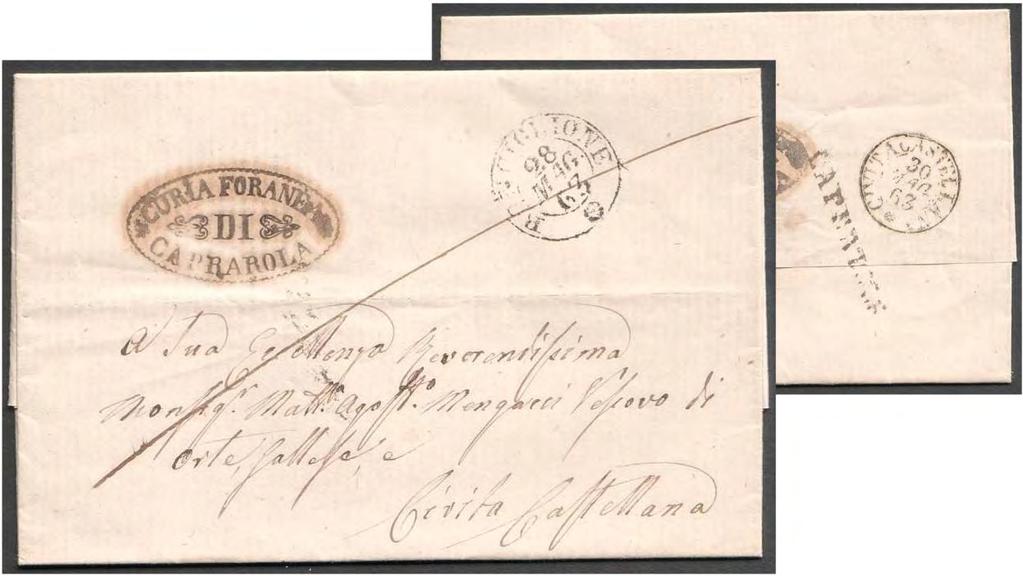 CURIA FORANEA
DI
CAPRAROLA
RONCIGLIONE
28
MAG
63
A Sua Eccellenza Reverendissima
Monsigr. Matt.a Agost.o Mengacci Vescovo di
Orte, Gallese, e
Civita Castellana
CIVITACASTELLANA
30
MAG
63